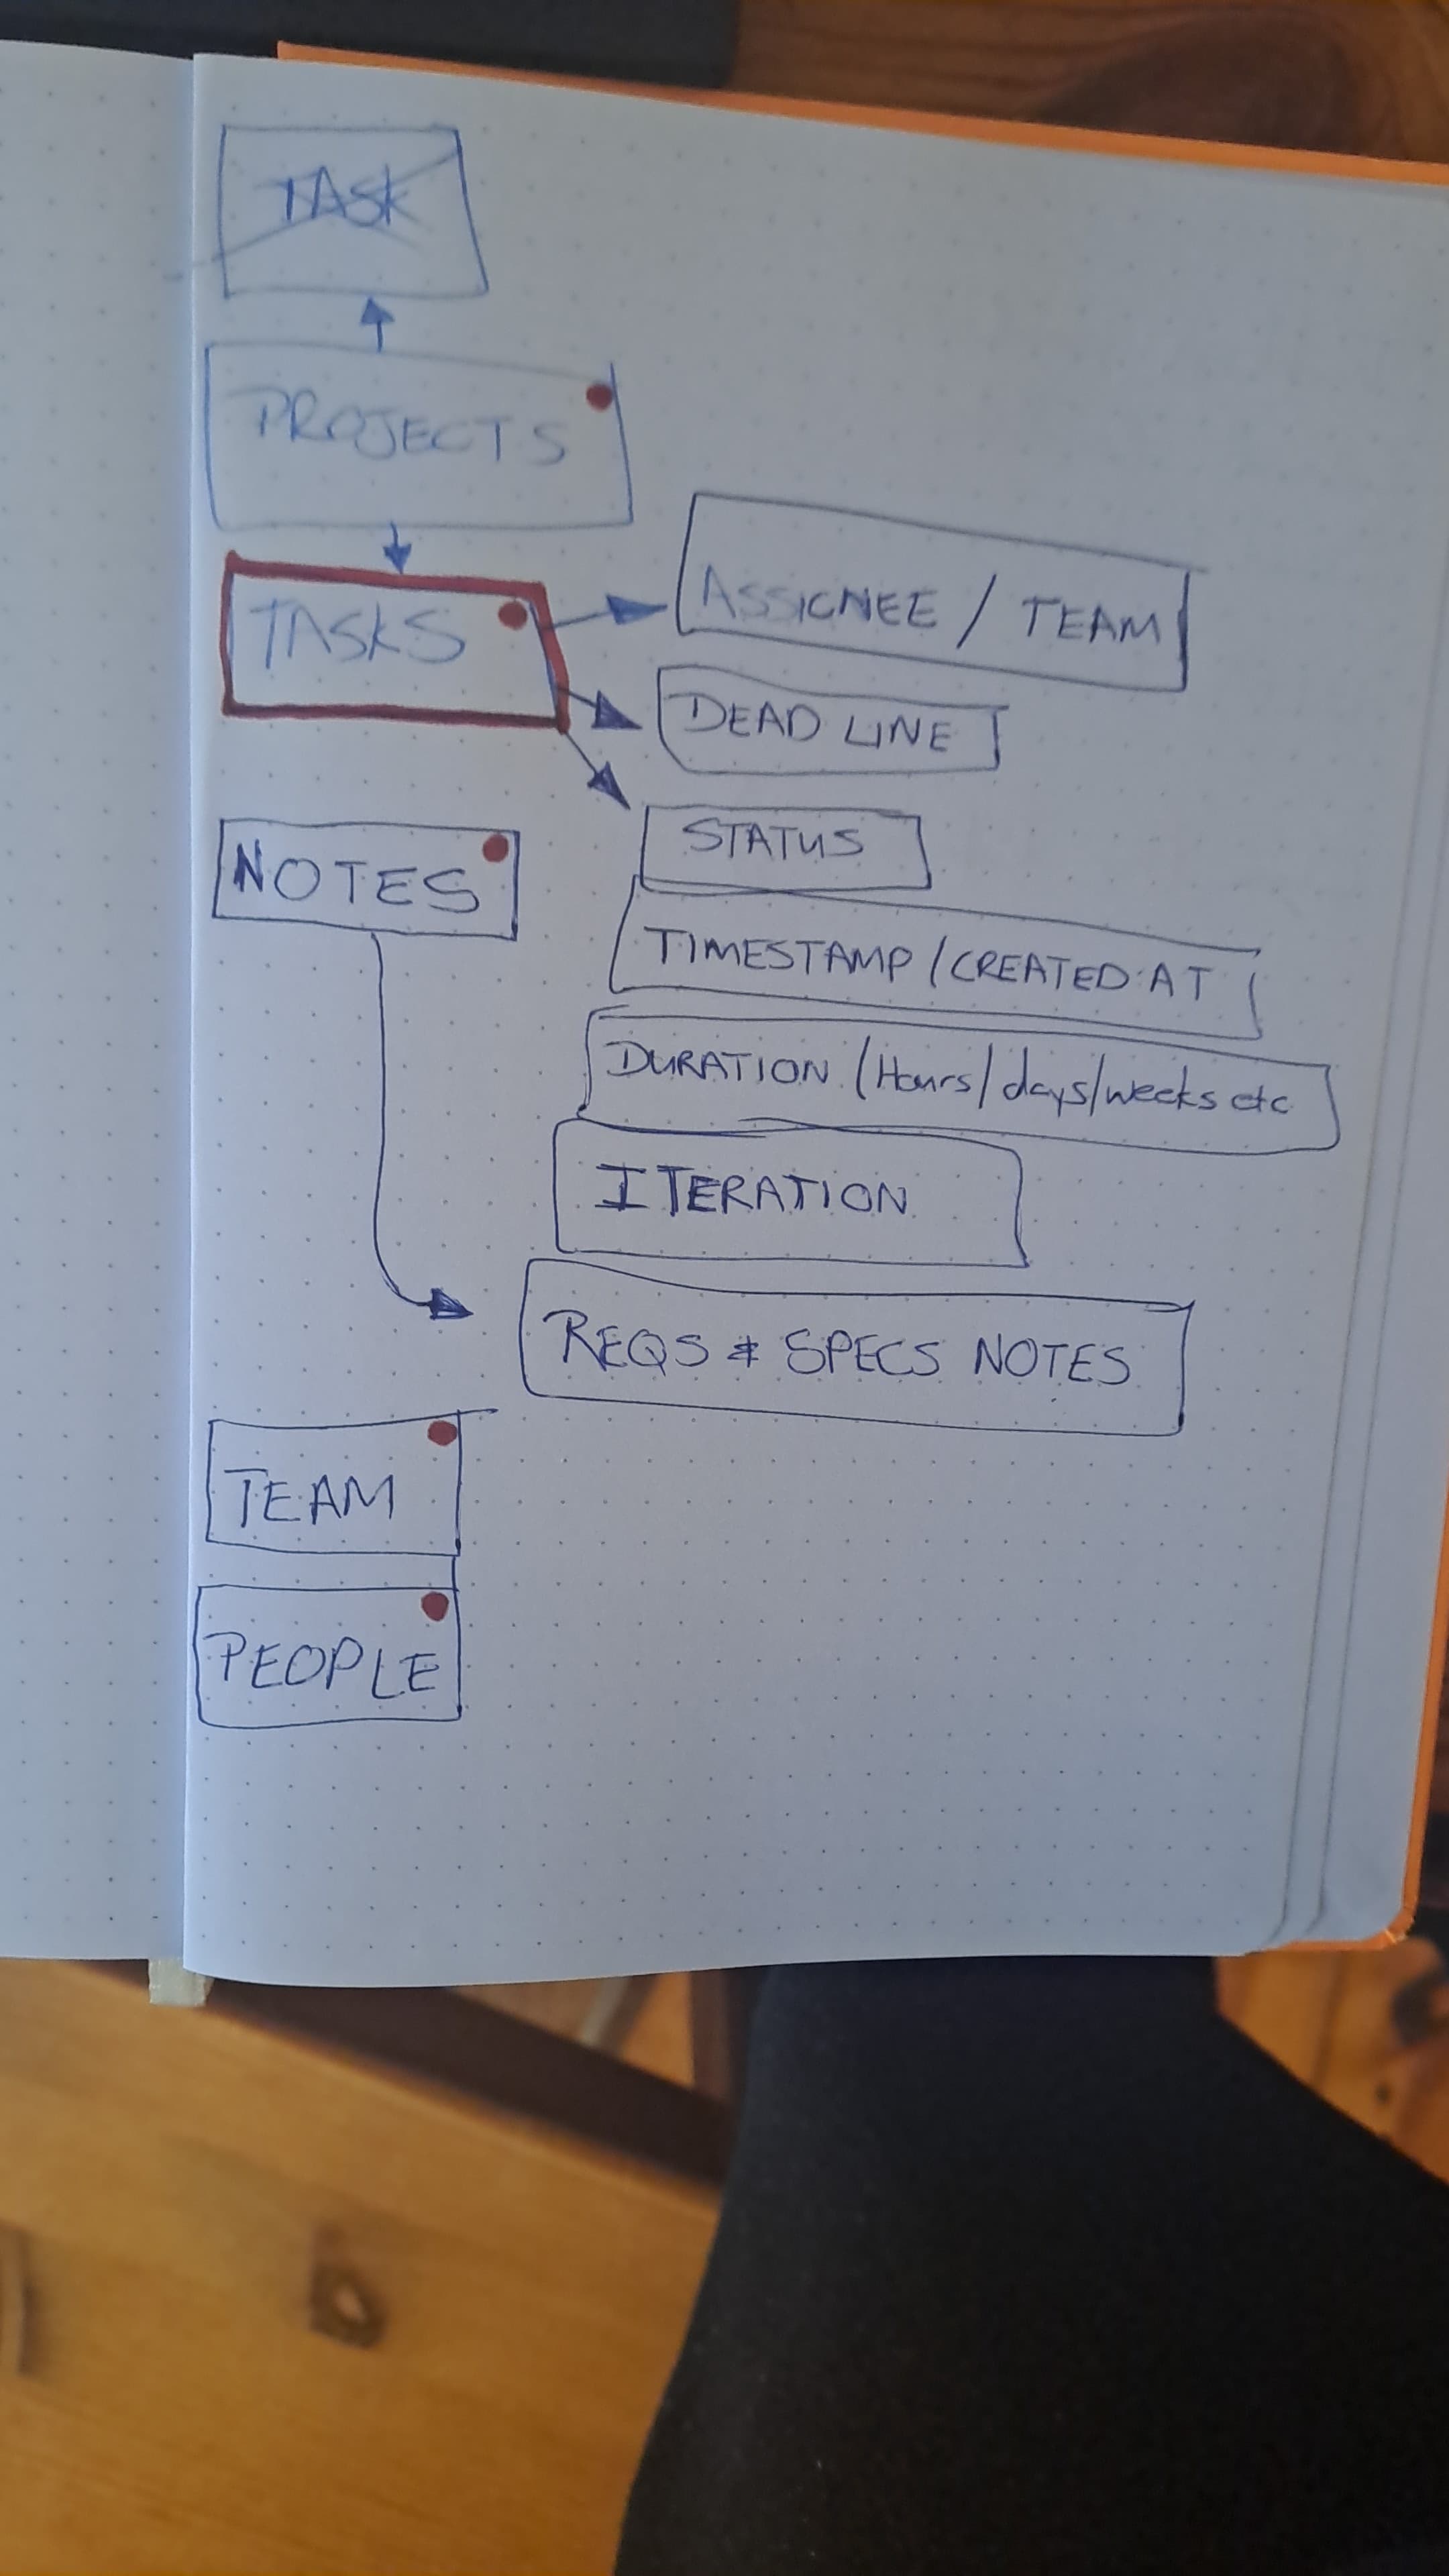 TASK
PROJECTS
TASKS
ASSIGNEE / TEAM
DEAD LINE
STATUS
NOTES
TIMESTAMP / CREATED AT
DURATION (Hours/days/weeks etc
ITERATION
REQS & SPECS NOTES
TEAM
PEOPLE